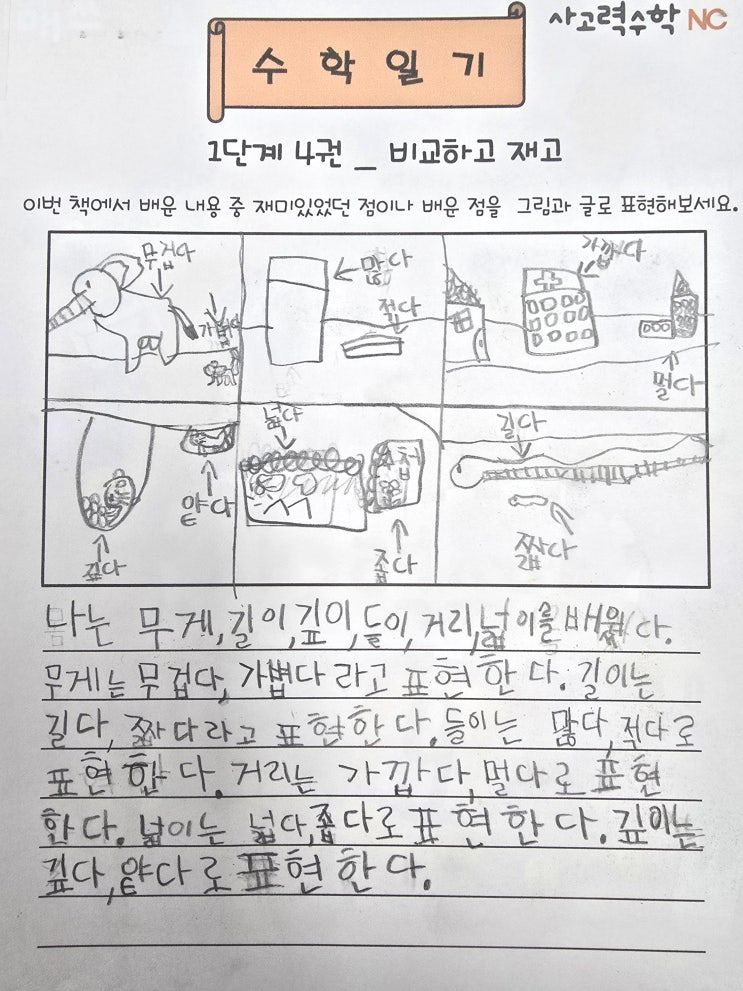 사고력수학 NC
수 학 일 기
1단계 4권 _ 비교하고 재고
이번 책에서 배운 내용 중 재미있었던 점이나 배운 점을 그림과 글로 표현해보세요.
무겁다
가볍다
많다
적다
가깝다
멀다
깊다
얕다
넓다
첩
좁다
길다
짧다
나는 무게, 길이, 깊이, 들이, 거리, 넓이를 배웠다.
무게는 무겁다, 가볍다 라고 표현한다. 길이는
길다, 짧다라고 표현한다. 들이는 많다, 적다로
표현한다. 거리는 가깝다, 멀다로 표현
한다. 넓이는 넓다, 좁다로 표현한다. 깊이는
깊다, 얕다로 표현한다.